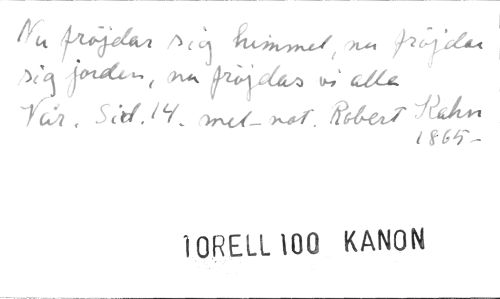 Nu fröjdar sig himmel, nu fröjdar
sig jorden, nu fröjdas vi alla
Vår. Sid. 14. mel-not. Robert Kahn
1865-
TORELL 100 KANON